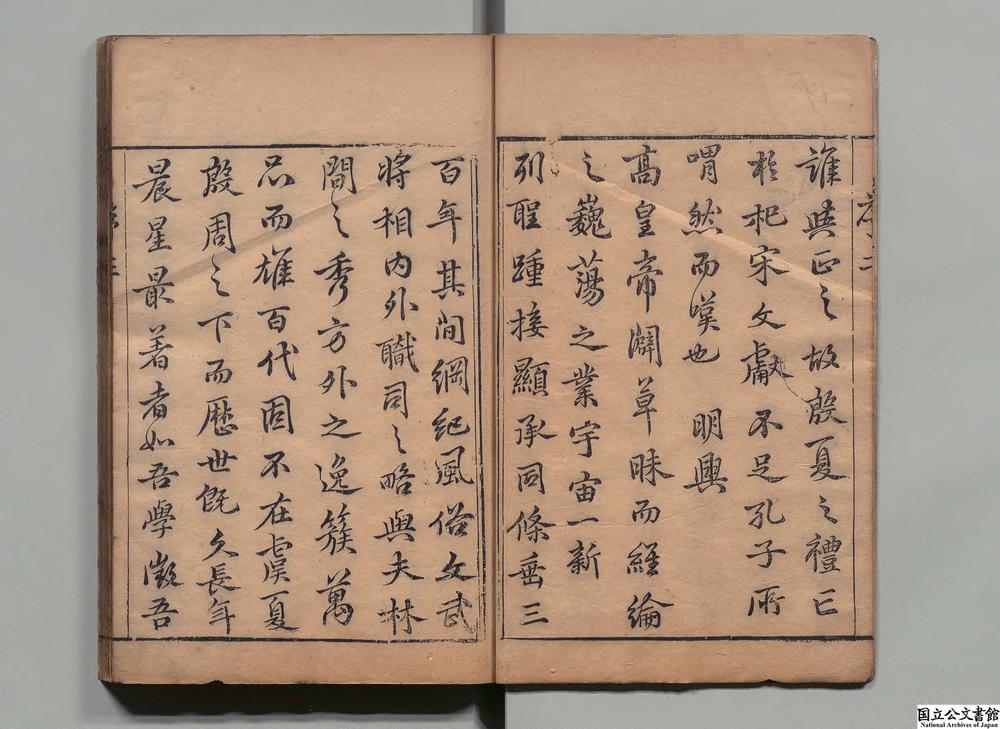 誰與正之故殷夏之禮亡
於杞宋文獻不足孔子所
喟然而嘆也 明興
高皇帝闢草昧而維綸
之巍蕩之業宇宙一新
列聖踵接顯承同條垂三
百年其間綱紀風俗文武
將相內外職司之略與夫林
間之秀方外之逸簇萬
品而雄百代固不在虞夏
殷周之下而歷世既久長年
晨星最著者如吾學徵吾
国立公文書館
National Archives of Japan